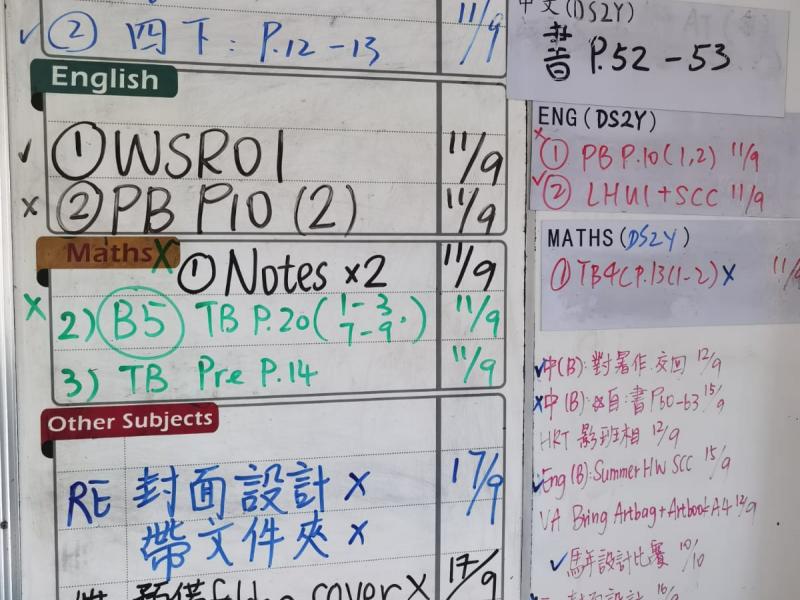 ✓ ② 四下: P.12-13 11/9
English
✓ ① WSR01 11/9
x ② PB P10 (2) 11/9
Maths X
① Notes x2 11/9
x 2) B5 TB P.20 (1-3, 7-9.) 11/9
3) TB Pre P.14 11/9
Other Subjects
RE 封面設計 x 17/9
帶文件夾 x
cover x 17/9
中文(DS2Y)
書 P.52-53
ENG (DS2Y)
x ① PB P.10 (1,2) 11/9
✓ ② LHU1+SCC 11/9
MATHS (DS2Y)
① TB4C P.13(1-2) x 11/
✓ 中(B): 對暑作.交回 12/9
x 中(B): 自:書 P50-63 15/9
HRT 影班相 12/9
✓ Eng(B): Summer HW SCC 15/9
VA Bring Artbag+Artbook A4 12/9
✓ 馬年設計比賽 10/10
封面設計 16/9